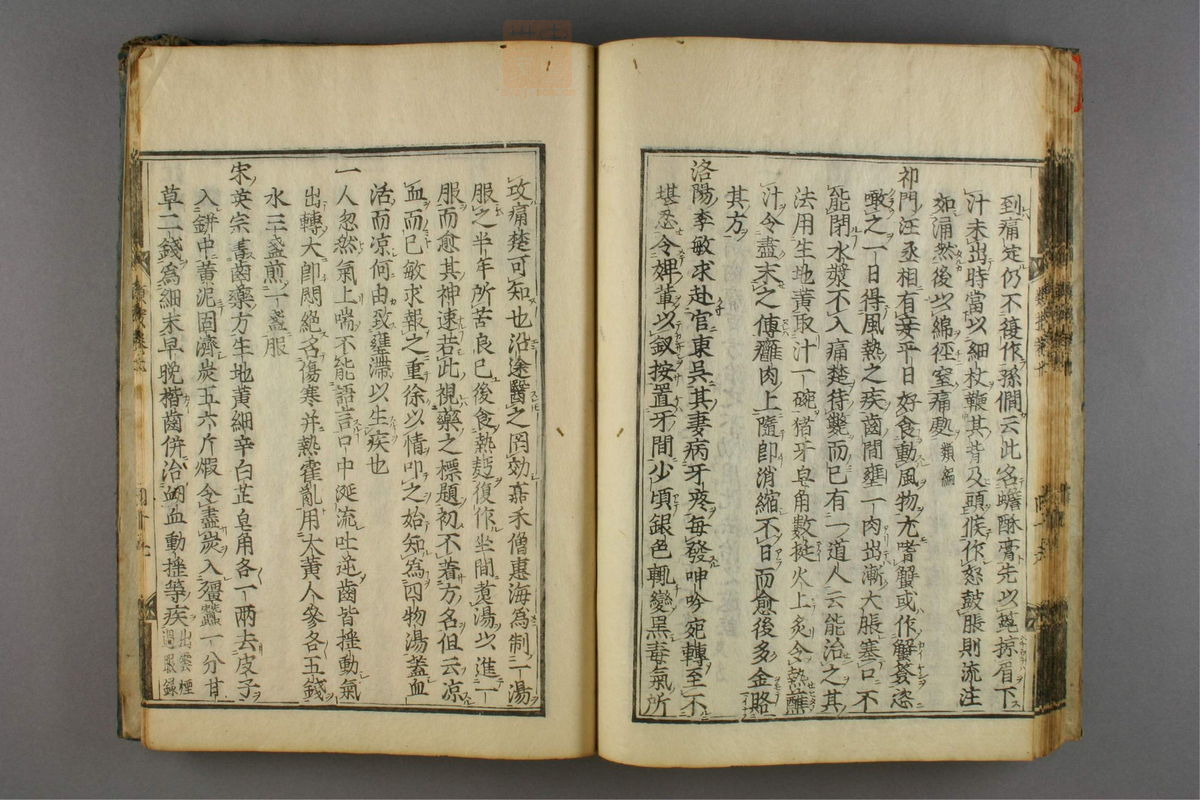 到痛定仍不復作孫僩云此名蟾酥膏先以篦掠眉下
汁未出時當以細杖鞭其背及頭候作怒鼓脹則流注
如湧然後以綿徑窒痛處 類編
祁門汪丞相有妾平日好食動風物尤嗜蟹或作蟹餐恣
噉之一日得風熱之疾齒間壅一肉出漸大脹塞口不
能閉水漿不入痛楚待斃而已有一道人云能治之其
法用生地黃取汁一碗猪牙皂角數挺火上炙令熱蘸
汁令盡末之傅癰肉上隨即消縮不日而愈後多金賂
其方
洛陽李敏求赴官東吳其妻病牙疼每發呻吟宛轉至不
堪忍令婢輩以釵按置牙間少頃銀色輒變黑毒氣所
攻痛楚可知也沿途醫之罔効嘉禾僧惠海為制一湯
服之半年所苦良已後食熱麪復作坐間煮湯以進一
服而愈其神速若此視藥之標題初不著方名但云凉
血而已敏求報之重徐以情叩之始知為四物湯蓋血
活而凉何由致壅滯以生疾也
一人忽然氣上喘不能語言口中涎流吐逆齒皆揺動氣
出轉大即悶絕名傷寒并熱霍亂用大黃人參各五錢
水三盞煎一盞服
宋英宗書齒藥方生地黃細辛白芷皂角各一兩去皮子
入缾中黃泥固濟炭五六斤煆令盡炭入殭蠶一分甘
草二錢為細末早晚揩齒併治衂血動揺等疾 出雲煙
過眼録